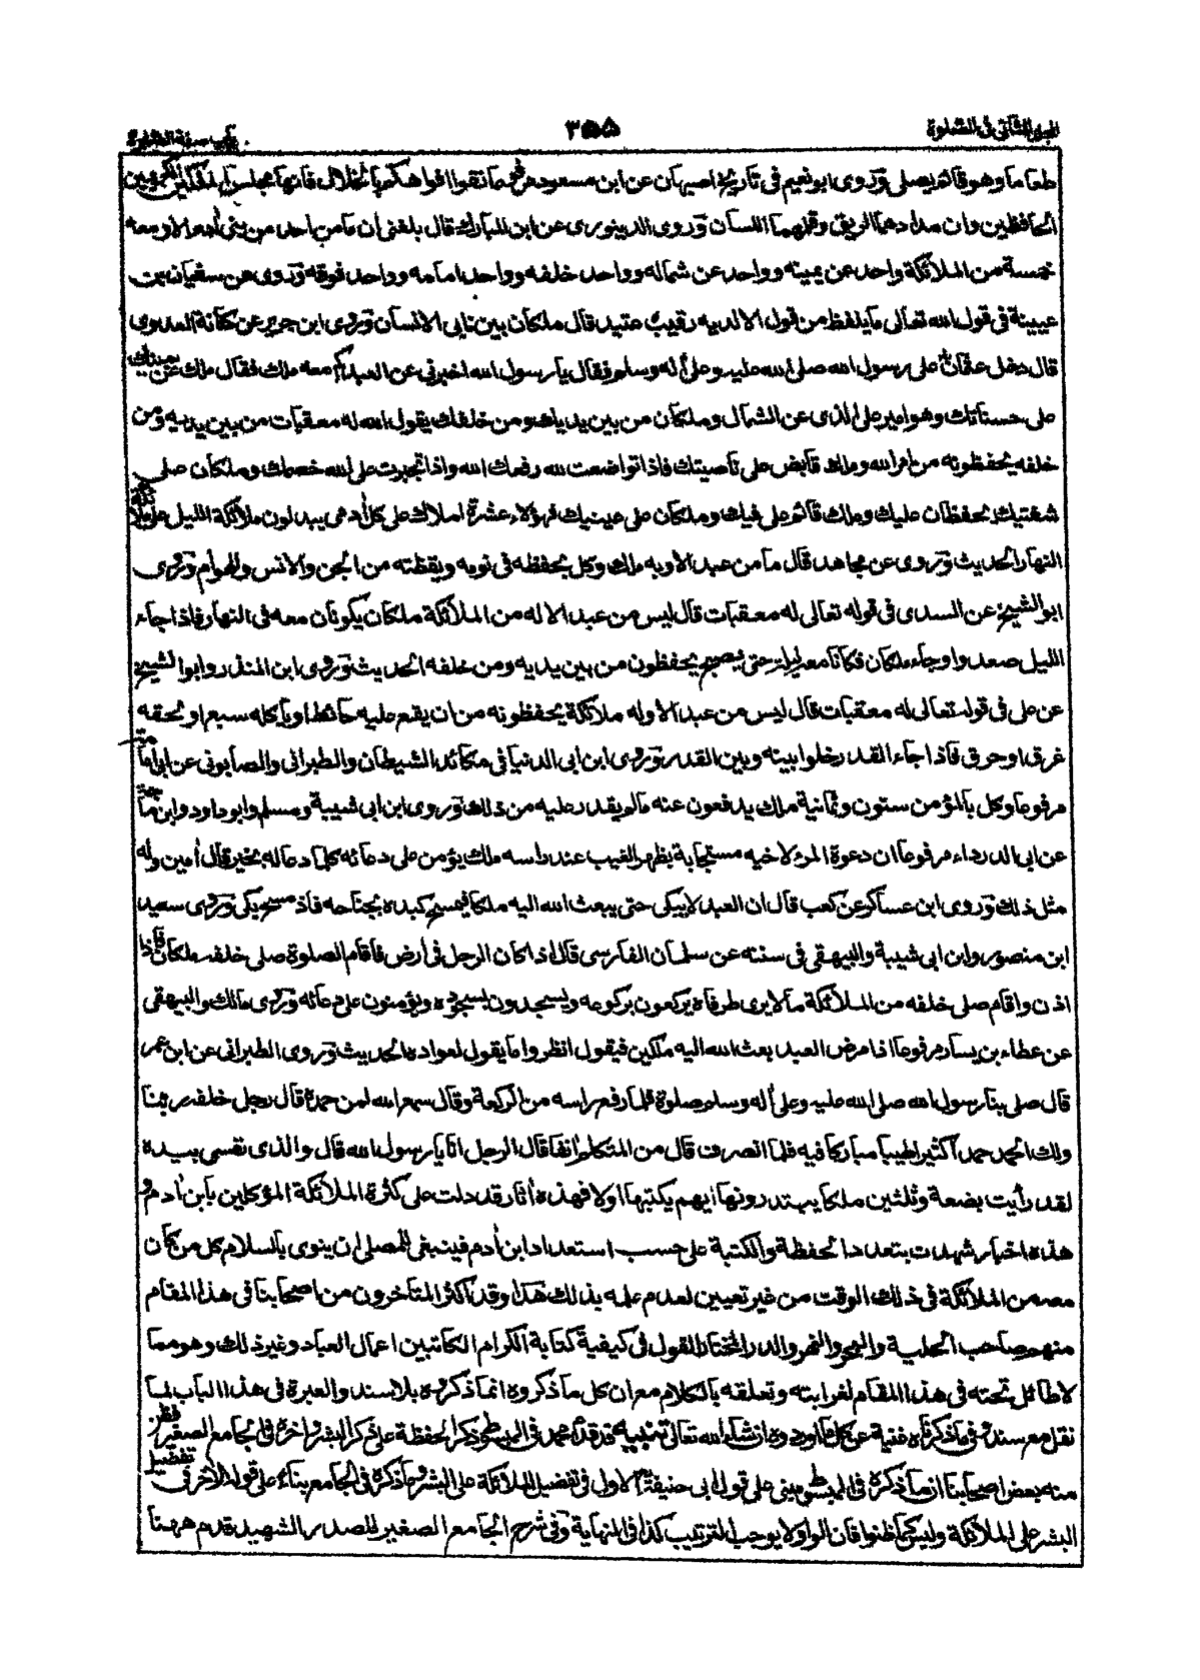 المجلد الثانى فى الصلوة
٣٥٥
باب صفة الصلوة
طعاما وهو قائم يصلى وروى ابو نعيم فى تاريخ اصبهان عن ابن مسعود مرفوعا نقوا افواهكم بالخلال فانها مجلس الملكين الكريمين
الحافظين وان مدادهما الريق وقلمهما اللسان وروى الدينورى عن ابن المبارك قال بلغنى ان ما من احد من بنى أدم الا ومعه
خمسة من الملائكة واحد عن يمينه وواحد عن شماله وواحد خلفه وواحد امامه وواحد فوقه وروى عن سفيان بن
عيينة فى قول الله تعالى ما يلفظ من قول الا لديه رقيب عتيد قال ملكان بين نابى الانسان وروى ابن جرير عن كنانة العدوى
قال دخل عثمان على رسول الله صلى الله عليه وعلى أله وسلم فقال يا رسول الله اخبرنى عن العبد كم معه ملك فقال ملك عن يمينك
على حسناتك وهو امير على الذى عن الشمال وملكان من بين يديك ومن خلفك يقول الله له معقبات من بين يديه ومن
خلفه يحفظونه من امر الله وملك قابض على ناصيتك فاذا تواضعت لله رفعك الله واذا تجبرت على الله خصمك وملكان على
شفتيك يحفظان عليك وملك قائم على فيك وملكان على عينيك فهؤلاء عشرة املاك على كل أدمى يبدلون ملائكة الليل على ملائكة
النهار الحديث وروى عن مجاهد قال ما من عبد الا وبه ملك وكل بحفظه فى نومه ويقظته من الجن والانس والهوام وروى
ابو الشيخ عن السدى فى قوله تعالى له معقبات قال ليس من عبد الا له من الملائكة ملكان يكونان معه فى النهار فاذا جاء
الليل صعدوا وجاء ملكان فكانا معه ليله حتى يصبح يحفظون من بين يديه ومن خلفه الحديث وروى ابن المنذر وابو الشيخ
عن على فى قوله تعالى له معقبات قال ليس من عبد الا وله ملائكة يحفظونه من ان يقع عليه حائط او يأكله سبع او يحقه
غرق او حرق فاذا جاء القدر خلوا بينه وبين القدر وروى ابن ابى الدنيا فى مكائد الشيطان والطبرانى والصابونى عن ابى امامة
مرفوعا وكل بالمؤمن ستون وثمانية ملك يدفعون عنه ما لم يقدر عليه من ذلك وروى ابن ابى شيبة ومسلم وابو داود وابن ماجة
عن ابى الدرداء مرفوعا ان دعوة المرء لاخيه مستجابة بظهر الغيب عند راسه ملك يؤمن على دعائه كلما دعا له بخير قال أمين وله
مثل ذلك وروى ابن عساكر عن كعب قال ان العبد لا يبكى حتى يبعث الله اليه ملكا فيمسح كبده بجناحه فاذا مسح بكى وروى سعيد
ابن منصور وابن ابى شيبة والبيهقى فى سننه عن سلمان الفارسى قال اذا كان الرجل فى ارض فاقام الصلوة صلى خلفه ملكان فاذا
اذن واقام صلى خلفه من الملائكة ما لا يرى طرفاه يركعون بركوعه ويسجدون بسجوده ويؤمنون على دعائه وروى مالك والبيهقى
عن عطاء بن يسار مرفوعا اذا مرض العبد بعث الله اليه ملكين فيقول انظروا ما يقول لعواده الحديث وروى الطبرانى عن ابن عمر
قال صلى بنا رسول الله صلى الله عليه وعلى أله وسلم صلوة فلما رفع راسه من الركعة وقال سمع الله لمن حمده قال رجل خلفه ربنا
ولك الحمد حمدا كثيرا طيبا مباركا فيه فلما انصرف قال من المتكلم أنفا قال الرجل انا يا رسول الله قال والذى نفسى بيده
لقد رأيت بضعة وثلثين ملكا يبتدرونها ايهم يكتبها اولا فهذه أثار قد دلت على كثرة الملائكة المؤكلين بابن أدم و
هذه اخبار شهدت بتعدد الحفظة والكتبة على حسب استعداد ابن أدم فينبغى للمصلى ان ينوى بالسلام كل من كان
معه من الملائكة فى ذلك الوقت من غير تعيين لعدم علمه بذلك هذا وقد اكثر المتأخرون من اصحابنا فى هذا المقام
منهم صاحب الحلية والبحر والنهر والدر المختار القول فى كيفية كتابة الكرام الكاتبين اعمال العباد وغير ذلك وهو مما
لا طائل تحته فى هذا المقام لغرابته وتعلقه بالكلام مع ان كل ما ذكروه انما ذكروه بلا سند والعبرة فى هذا الباب لما
نقل مع سنده وفى ما ذكرناه غنية عن كل ما اوردوه ان شاء الله تعالى تنبيه قد قدم محمد فى المبسوط ذكر الحفظة على ذكر البشر واخره فى الجامع الصغير فظن
منه بعض اصحابنا ان ما ذكره فى المبسوط مبنى على قول ابى حنيفة الاول فى تفضيل الملائكة على البشر وما ذكره فى الجامع بناء على قوله الأخر فى تفضيل
البشر على الملائكة وليس كما ظنوا فان الواو لا يوجب الترتيب كذا فى النهاية وفى شرح الجامع الصغير للصدر الشهيد قدم ههنا